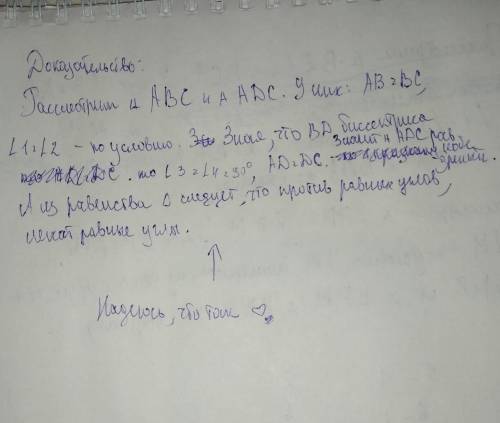 Доказательство:
Рассмотрим Δ ABC и Δ ADC. У них: AB=BC,
∠1=∠2 - по условию. Зная, что BD биссектриса
значит Δ ADC рав
то ∠3=∠4=90°, AD=DC.
А из равенства Δ следует, что против равных углов,
лежат равные углы.
Надеюсь, что так ♡